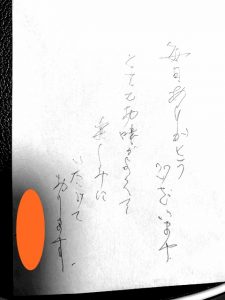 毎日、ありがとう
ございます
とてもお味がよくて
楽しみに
いただいて
おります。